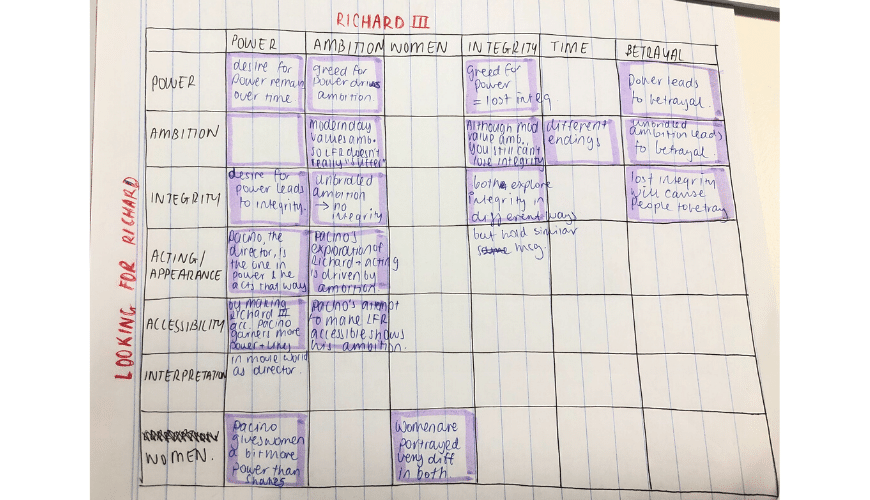 RICHARD III
POWER AMBITION WOMEN INTEGRITY TIME BETRAYAL
LOOKING FOR RICHARD
POWER
desire for
power remain
over time
greed for
power drives
ambition
Greed for
power
= lost integ
Power leads
to betrayal
AMBITION
Modern day
values amb.
so LFR doesn't
really "suffer"
Although mod
value amb..
you still can't
lose integrity
different
endings
unbridled
ambition leads
to betrayal
INTEGRITY
desire for
power leads
to integrity.
unbridled
ambition
→ no
integrity
both explore
integrity in
different ways
but hold similar
msg.
lost integrity
will cause
people to betray
ACTING/
APPEARANCE
Pacino, the
director, is
the one in
power & he
acts that way
Pacino's
exploration of
Richard + acting
is driven by
ambition
ACCESSIBILITY
by making
Richard III
acc. Pacino
garners more
power +
in movie world
as director.
Pacino's attempt
to make LFR
accessible shows
his ambition.
INTERPRETATION
WOMEN.
Pacino
gives women
a bit more
power than
Shakes
Women are
portrayed
very diff
in both